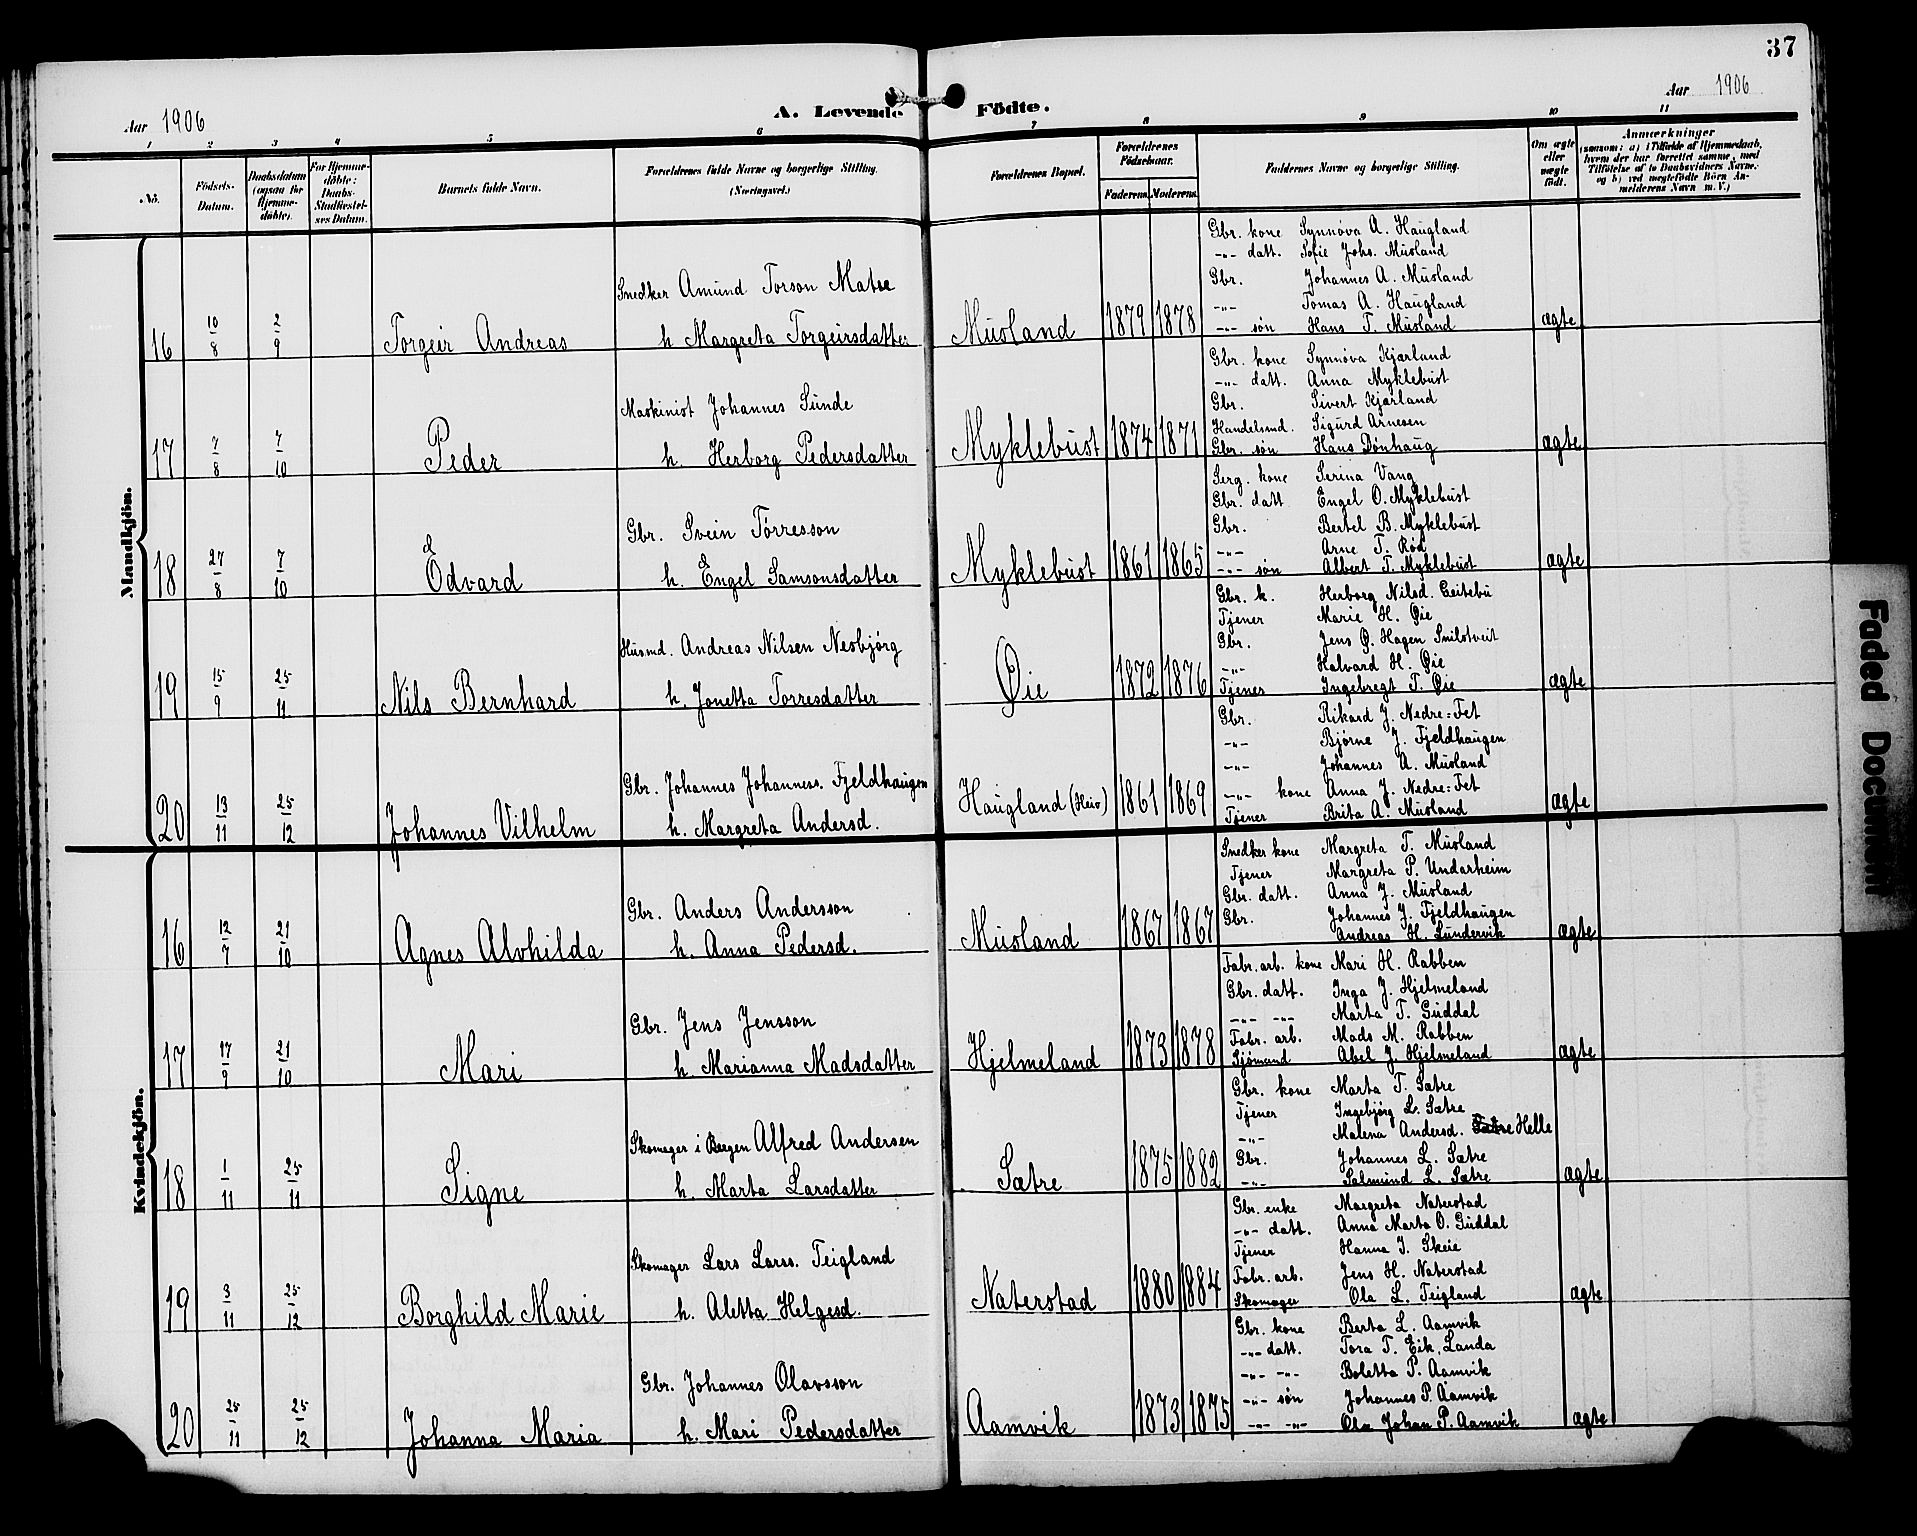 37
Aar 1906
A. Levende Födte.
Aar 1906
1 2 3 4 5 6 7 8 9 10 11
No.
Födsels-Datum.
Daabsdatum (ogsaa for Hjemmedöbte).
For Hjemmedöbte: Daabs-Stadfæstelses Datum.
Barnets fulde Navn.
Forældrenes fulde Navne og borgerlige Stilling. (Næringsvei.)
Forældrenes Bopæl.
Forældrenes Födselsaar.
Faderens. Moderens.
Faddernes Navne og borgerlige Stilling.
Om ægte eller uægte födt.
Anmærkninger
(saasom: a) i Tilfælde af Hjemmedaab, hvem der har forrettet samme, med Tilföielse af to Daabsvidners Navne; og b) ved uægtefödte Börn Anmelderens Navn m. V.)
Mandkjön.
16 10/8 2/9 Torgeir Andreas
Snedker Amund Torson Matre
h. Margreta Torgeirsdatter
Musland 1879 1878
Gbr. kone Synnøva A. Haugland
-"- datt. Sofie Johs. Musland
Gbr. Johannes A. Musland
-"- Tomas A. Haugland
-"- søn Hans T. Musland
ægte
17 7/8 7/10 Peder
Maskinist Johannes Sunde
h. Herborg Pedersdatter
Myklebust 1874 1871
Gbr. kone Synnøva Kjærland
-"- datt. Anna Myklebust
Gbr. Sivert Kjærland
Handelsmd. Sigurd Arnesen
Gbr. søn Hans Dønhaug
ægte
18 27/8 7/10 Edvard
Gbr. Svein Tørresson
h. Engel Samsonsdatter
Myklebust 1861 1865
Serg. kone Serina Vang
Gbr. datt. Engel O. Myklebust
Gbr. Bertel B. Myklebust
-"- Arne T. Rød
-"- søn Albert T. Myklebust
ægte
19 15/9 25/11 Nils Bernhard
Husmd. Andreas Nilsen Nesbjørg
h. Jonetta Torresdatter
Øie 1872 1876
Gbr. k. Herborg Nilsd. Geitebu
Tjener Marie H. Øie
Gbr. Jens Ø. Hagen Snilstveit
-"- Halvard H. Øie
Tjener Ingebregt T. Øie
ægte
20 13/11 25/12 Johannes Vilhelm
Gbr. Johannes Johanness. Fjeldhaugen
h. Margreta Andersd.
Haugland (Heio) 1861 1869
Gbr. Rikard J. Nedre=Fet
-"- Bjørne J. Fjeldhaugen
-"- Johannes A. Musland
-"- kone Anna J. Nedre=Fet
Tjener Brita A. Musland
ægte
Kvindekjön.
16 12/7 21/10 Agnes Alvhilda
Gbr. Anders Andersson
h. Anna Pedersd.
Musland 1867 1867
Snedker kone Margreta T. Musland
Tjener Margreta P. Undarheim
Gbr. datt. Anna J. Musland
Gbr. Johannes J. Fjeldhaugen
Andreas H. Lundervik
ægte
17 17/9 21/10 Mari
Gbr. Jens Jensson
h. Marianna Madsdatter
Hjelmeland 1873 1878
Fabr. arb. kone Mari H. Rabben
Gbr. datt. Inga J. Hjelmeland
-"- -"- Marta T. Guddal
Fabr. arb. Mads M. Rabben
Sjømand Abel J. Hjelmeland
ægte
18 1/11 25/11 Signe
Skomager i Bergen Alfred Andersen
h. Marta Larsdatter
Sætre 1875 1882
Gbr. kone Marta T. Sætre
Tjener Ingebjørg L. Sætre
-"- Malena Andersd. Helle
Gbr. Johannes L. Sætre
-"- Salmund L. Sætre
ægte
19 3/11 25/12 Borghild Marie
Skomager Lars Larss. Teigland
h. Aletta Helgesd.
Naterstad 1880 1884
Gbr. enke Margreta Naterstad
-"- datt. Anna Marta O. Guddal
Tjener Hanna J. Skeie
Fabr. arb. Jens H. Naterstad
Skomager Ola L. Teigland
ægte
20 25/11 25/12 Johanna Maria
Gbr. Johannes Olavsson
h. Mari Pedersdatter
Aamvik 1873 1875
Gbr. kone Berta L. Aamvik
-"- datt. Tora T. Eik, Landa
-"- -"- Boletta P. Aamvik
-"- søn Johannes P. Aamvik
-"- -"- Ola Johan P. Aamvik
ægte
Faded Document